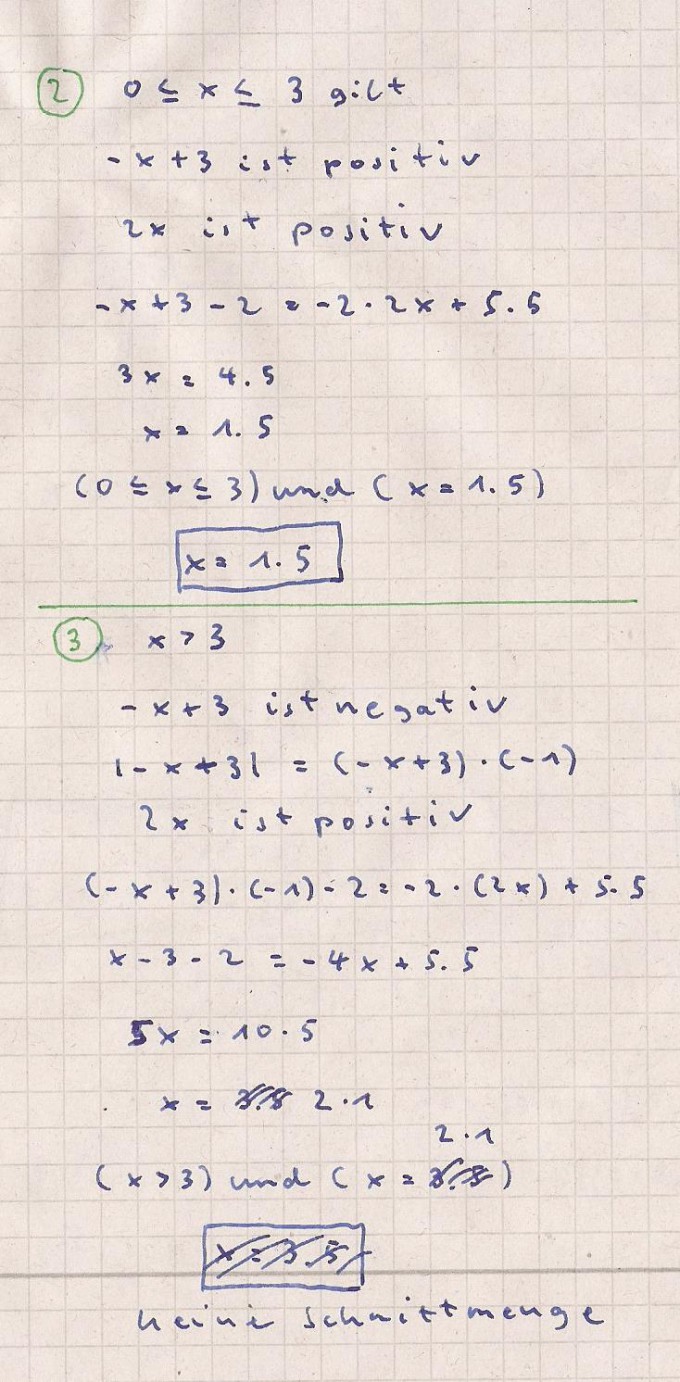 2 0 ≤ x ≤ 3 gilt
-x+3 ist positiv
2x ist positiv
-x+3-2 = -2·2x+5.5
3x = 4.5
x = 1.5
(0 ≤ x ≤ 3) und (x = 1.5)
x = 1.5
3 x > 3
-x+3 ist negativ
|-x+3| = (-x+3)·(-1)
2x ist positiv
(-x+3)·(-1)-2 = -2·(2x)+5.5
x-3-2 = -4x+5.5
5x = 10.5
x = 2.1
2.1
(x > 3) und (x = )
keine Schnittmenge